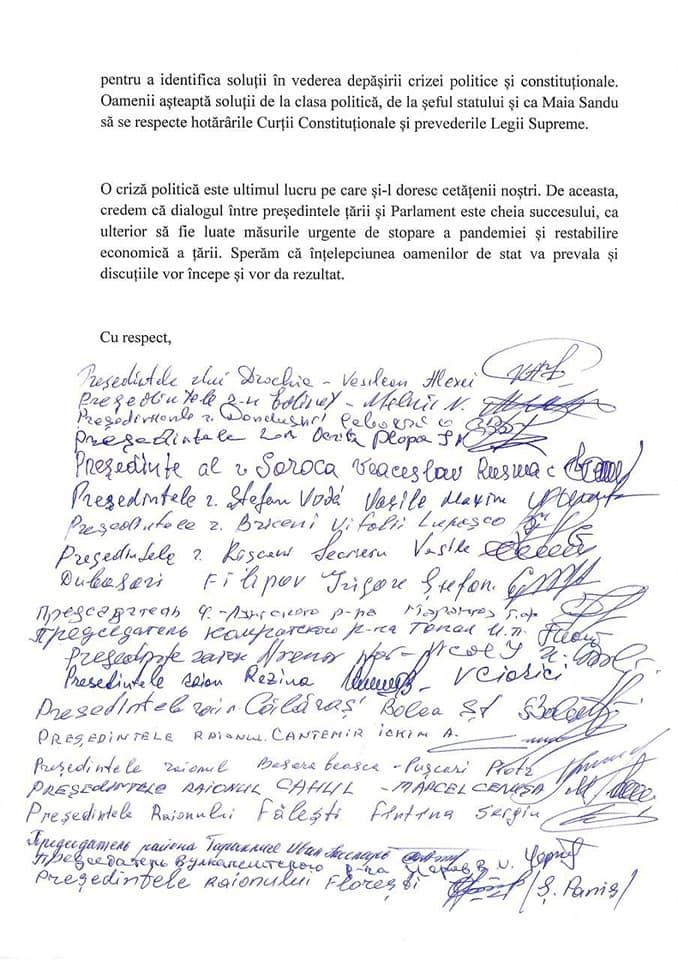 pentru a identifica soluții în vederea depășirii crizei politice și constituționale.
Oamenii așteaptă soluții de la clasa politică, de la șeful statului și ca Maia Sandu
să se respecte hotărârile Curții Constituționale și prevederile Legii Supreme.
O criză politică este ultimul lucru pe care și-l doresc cetățenii noștri. De aceasta,
credem că dialogul între președintele țării și Parlament este cheia succesului, ca
ulterior să fie luate măsurile urgente de stopare a pandemiei și restabilire
economică a țării. Sperăm că înțelepciunea oamenilor de stat va prevala și
discuțiile vor începe și vor da rezultat.
Cu respect,
Președintele Drochia - Alexei
Președintele Edineț - Melnic N.
Dondușeni
Președintele Plopa
Președinte al r Soroca Veaceslav Rusnac
Președintele r. Ștefan Vodă Vasile Maxim
Președintele r. Briceni Vitalii Lupașco
Președintele r. Vasile
Dubăsari Filipov Grigore Ștefan.
Председатель р-на
Председатель Комратского р-на Топал И.П.
Președinte raion
Președintele raion Rezina V Ciobici
Președintele Călărași Bolea
PREȘEDINTELE RAIONUL CANTEMIR ICHIM A.
Președintele raionul Basarabeasca - Pușcari Piotr
PREȘEDINTELE RAIONUL CAHUL - MARCEL CENUȘA
Președintele Raionului Fălești Fîntîna Sergiu
Председатель района Тараклия Иван
Председатель Вулканештского р-на
Președintele Raionului Florești /Ș. Paniș/